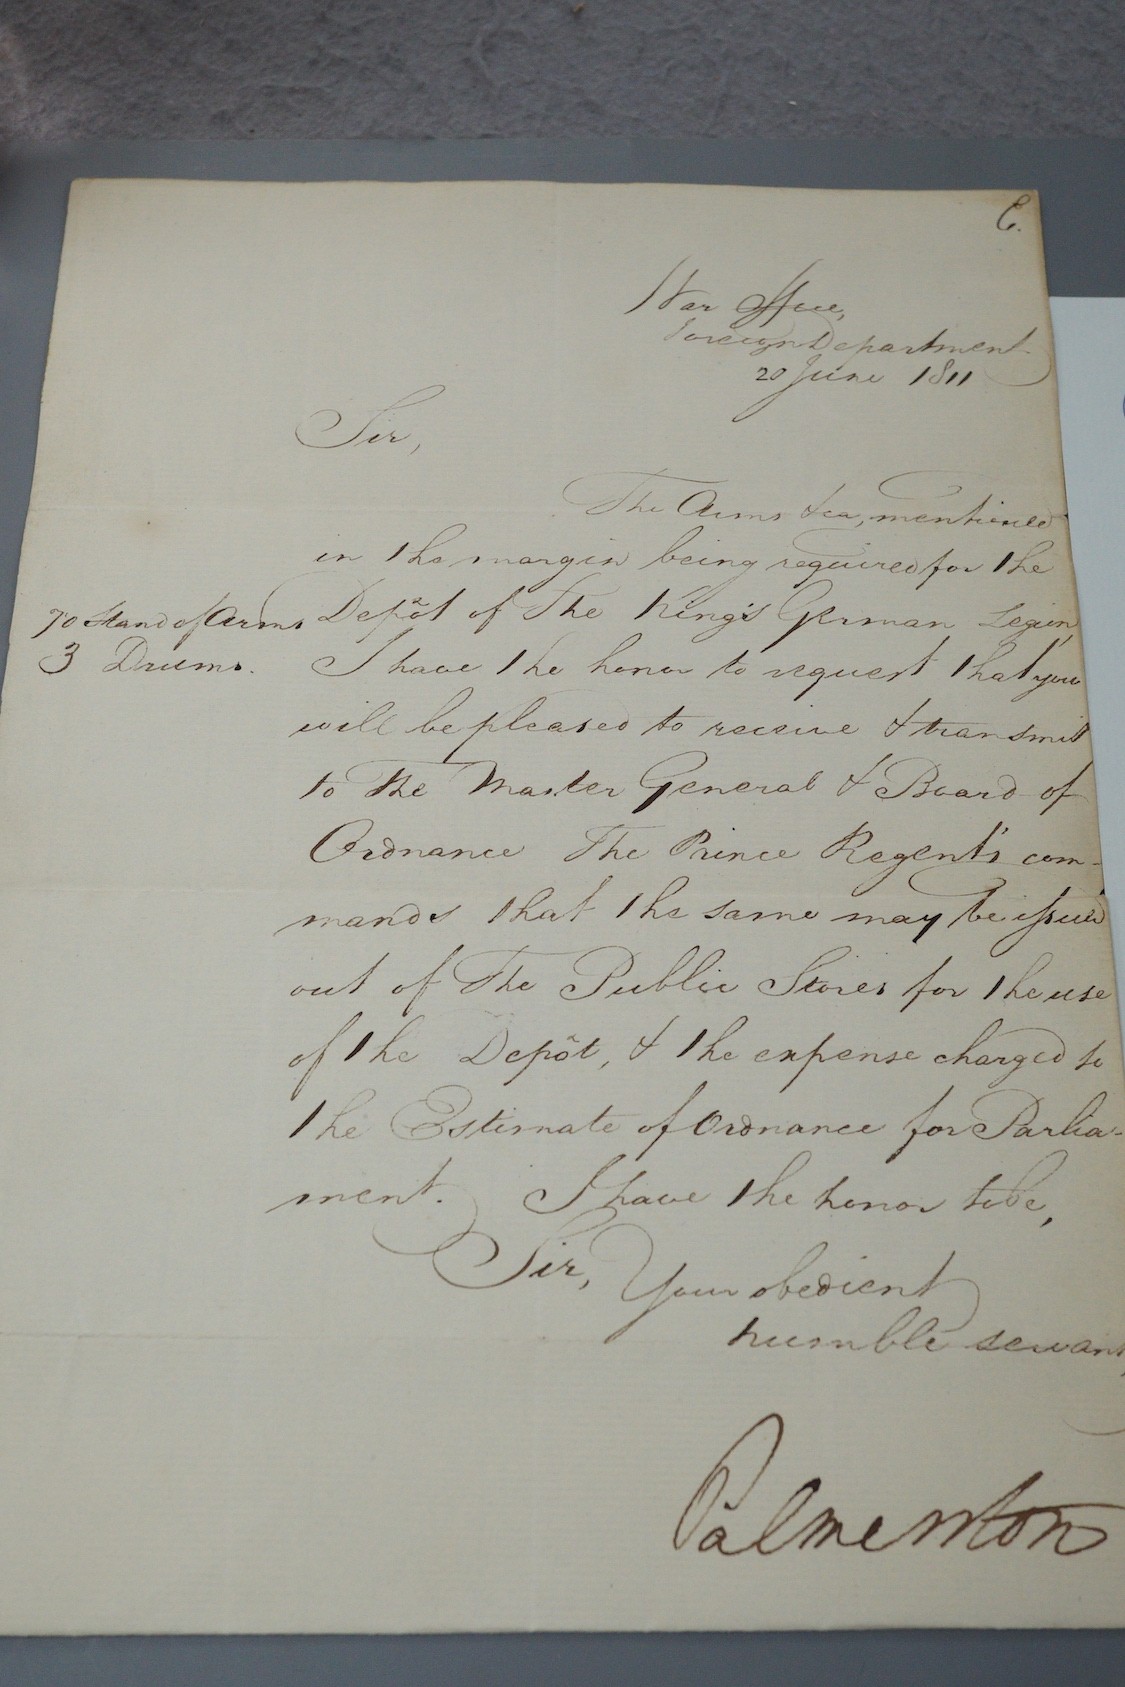 E.
War Office,
Foreign Department
20 June 1811
Sir,
The Arms &ca, mentioned
in the margin being required for the
70 Stand of Arms
3 Drums.
Depôt of The King's German Legion,
I have the honor to request that you
will be pleased to receive & transmit
to The Master General & Board of
Ordnance The Prince Regent's com-
mands that the same may be issued
out of The Public Stores for the use
of the Depôt, & the expense charged to
the Estimate of Ordnance for Parlia-
ment. I have the honor to be,
Sir, Your obedient
humble servant,
Palmerston